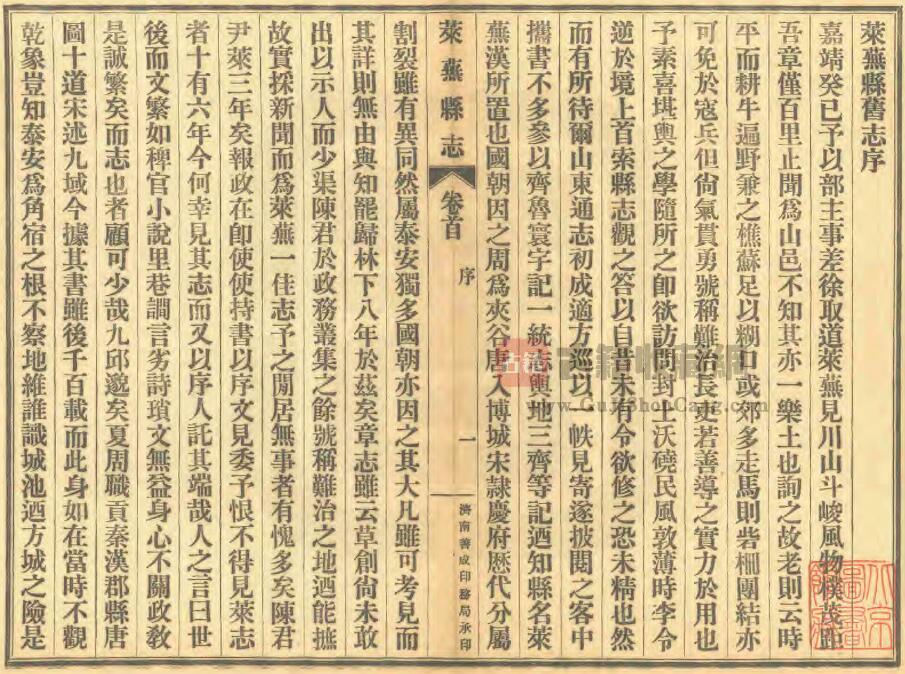 萊蕪縣舊志序
嘉靖癸巳予以部主事差徐取道萊蕪見川山斗峻風物樸茂距
吾章僅百里止聞爲山邑不知其亦一樂土也詢之故老則云時
平而耕牛遍野兼之樵蘇足以糊口或郊多走馬則砦柵團結亦
可免於寇兵但尙氣貫勇號稱難治長吏若善導之實力於用也
予素喜堪輿之學隨所之卽欲訪問封土沃磽民風敦薄時李令
逆於境上首索縣志觀之答以自昔未有令欲修之恐未精也然
而有所待爾山東通志初成適方巡以一帙見寄遂披閱之客中
攜書不多參以齊魯寰宇記一統志輿地三齊等記迺知縣名萊
蕪漢所置也國朝因之周爲夾谷唐入博城宋隸慶府歷代分屬
萊蕪縣志
卷首
序
一
濟南善成印務局承印
割裂雖有異同然屬泰安獨多國朝亦因之其大凡雖可考見而
其詳則無由與知罷歸林下八年於茲矣章志雖云草創尙未敢
出以示人而少渠陳君於政務叢集之餘號稱難治之地迺能摭
故實採新聞而爲萊蕪一佳志予之閒居無事者有愧多矣陳君
尹萊三年矣報政在卽便使持書以序文見委予恨不得見萊志
者十有六年今何幸見其志而又以序人託其端哉人之言曰世
後而文繁如稗官小說里巷讕言劣詩瑣文無益身心不關政敎
是誠繁矣而志也者顧可少哉九邱邈矣夏周職貢秦漢郡縣唐
圖十道宋述九域今據其書雖後千百載而此身如在當時不觀
乾象豈知泰安爲角宿之根不察地維誰識城池迺方城之險是
古籍
www.GujiShuCang.com